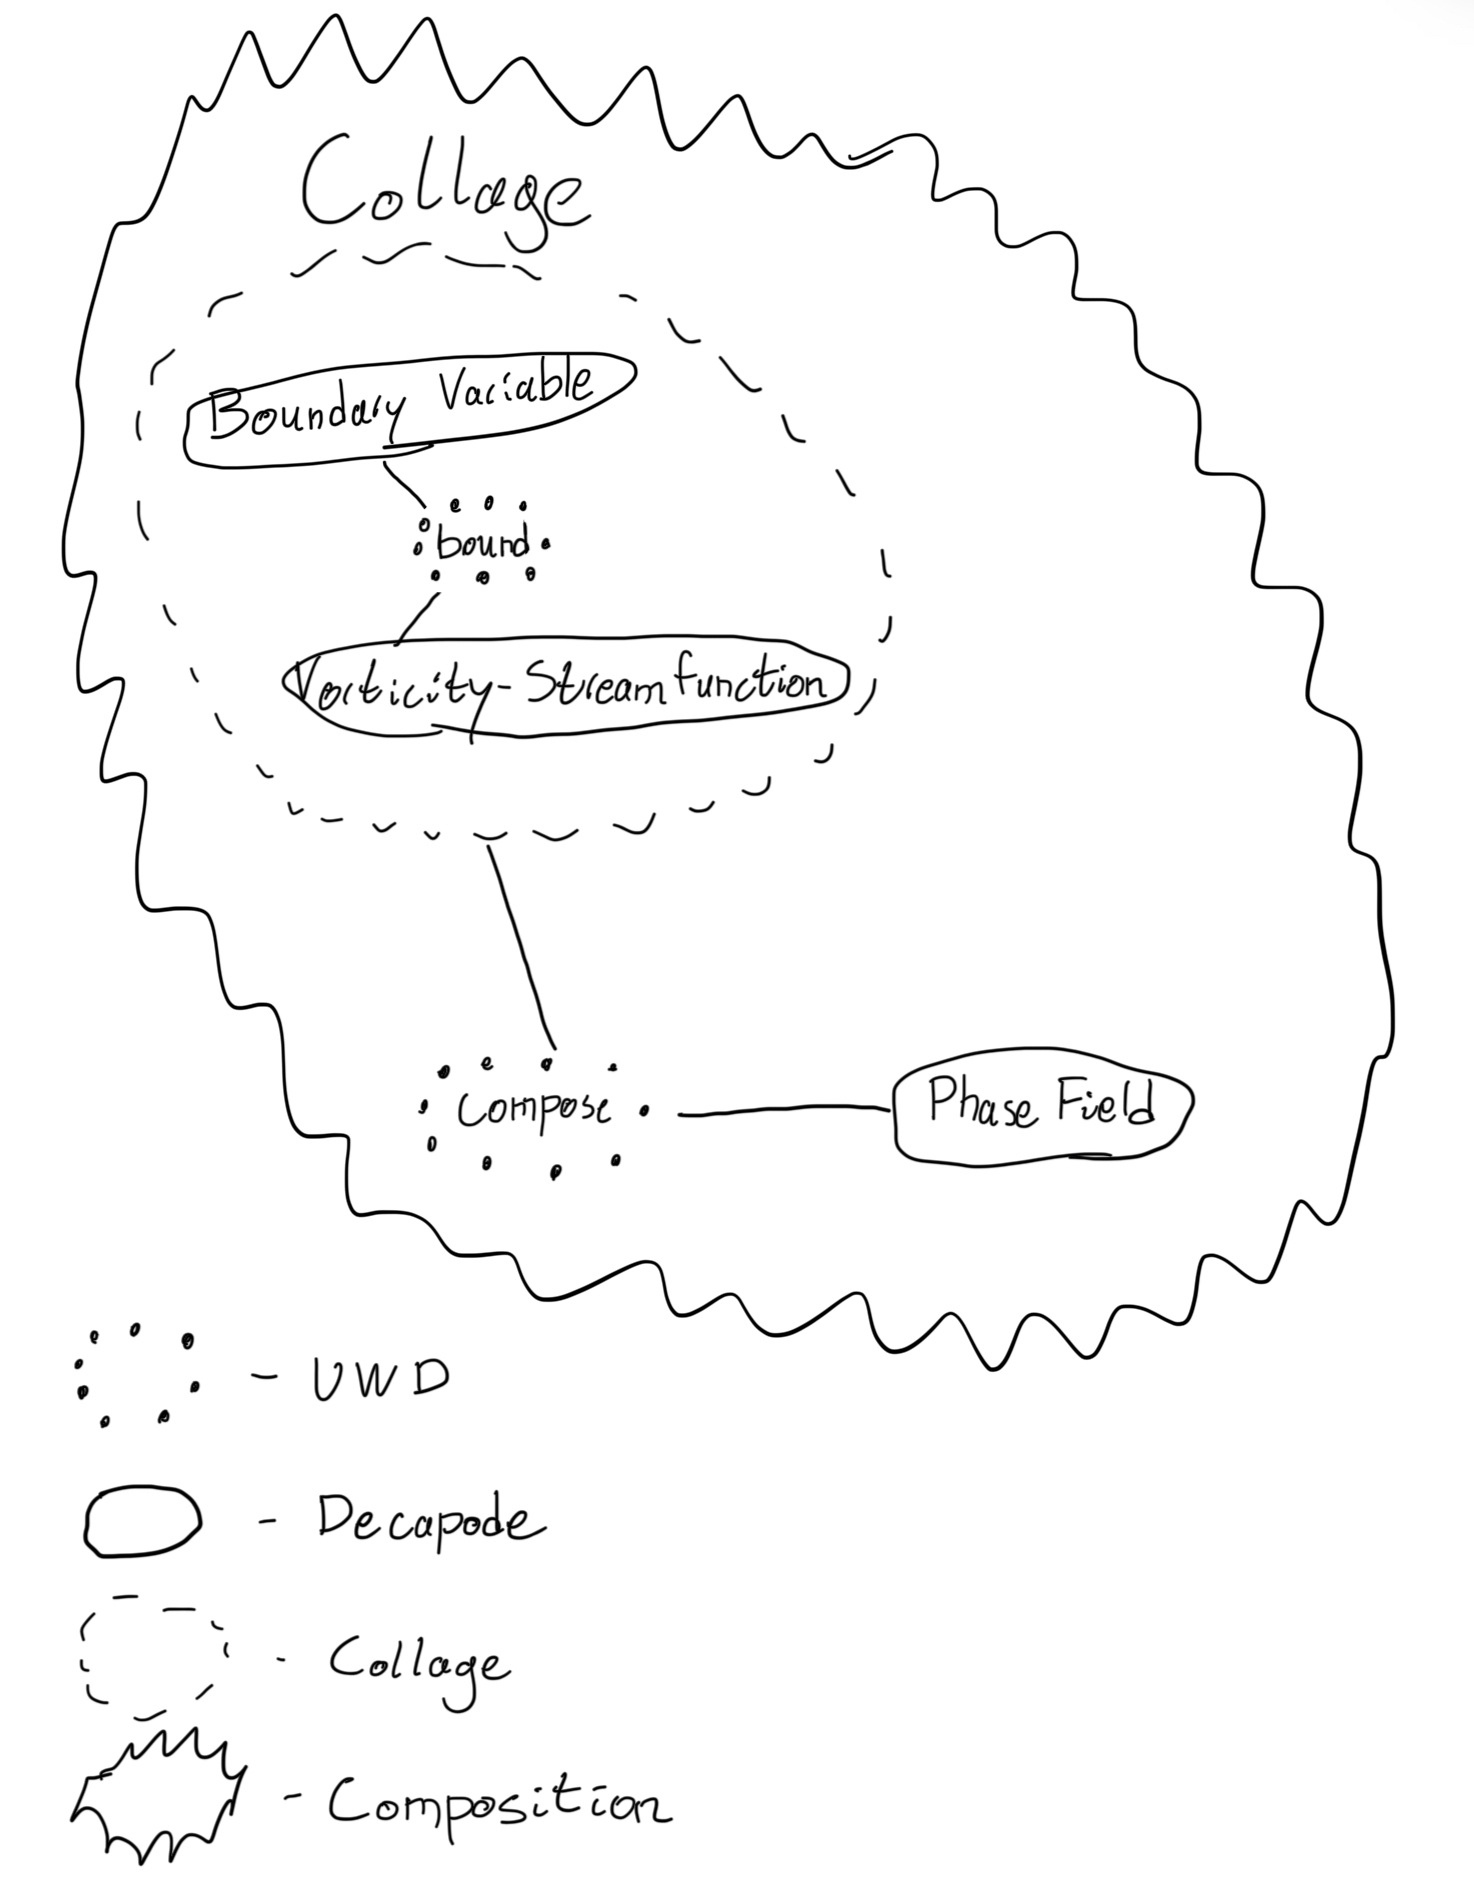 Collage
Boundary Variable
bound
Vorticity-Streamfunction
Compose
Phase Field
- UWD
- Decapode
- Collage
- Composition